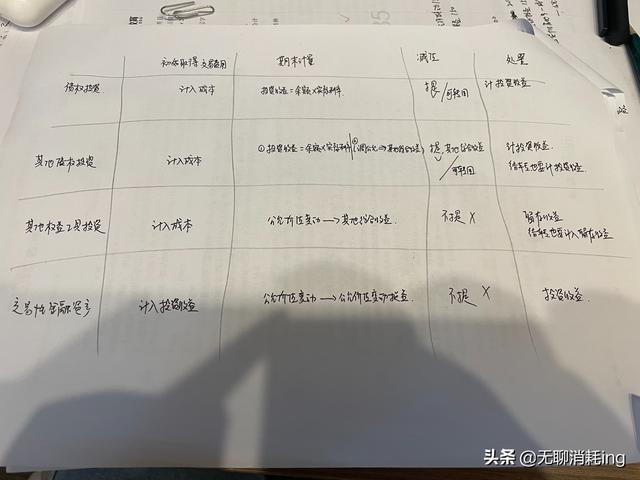 初始取得交易费用 期末计量 减值 处置
债权投资 计入成本 投资收益=余额×实际利率 提/可转回 计投资收益
其他债权投资 计入成本 ①投资收益=余额×实际利率 ②调公允→其他综合收益 提 其他综合收益/可转回 计投资收益
结转也要计投资收益
其他权益工具投资 计入成本 公允价值变动→其他综合收益 不提× 留存收益
结转也要计入留存收益
交易性金融资产 计入投资收益 公允价值变动→公允价值变动损益 不提× 投资收益
头条 @无聊消耗ing